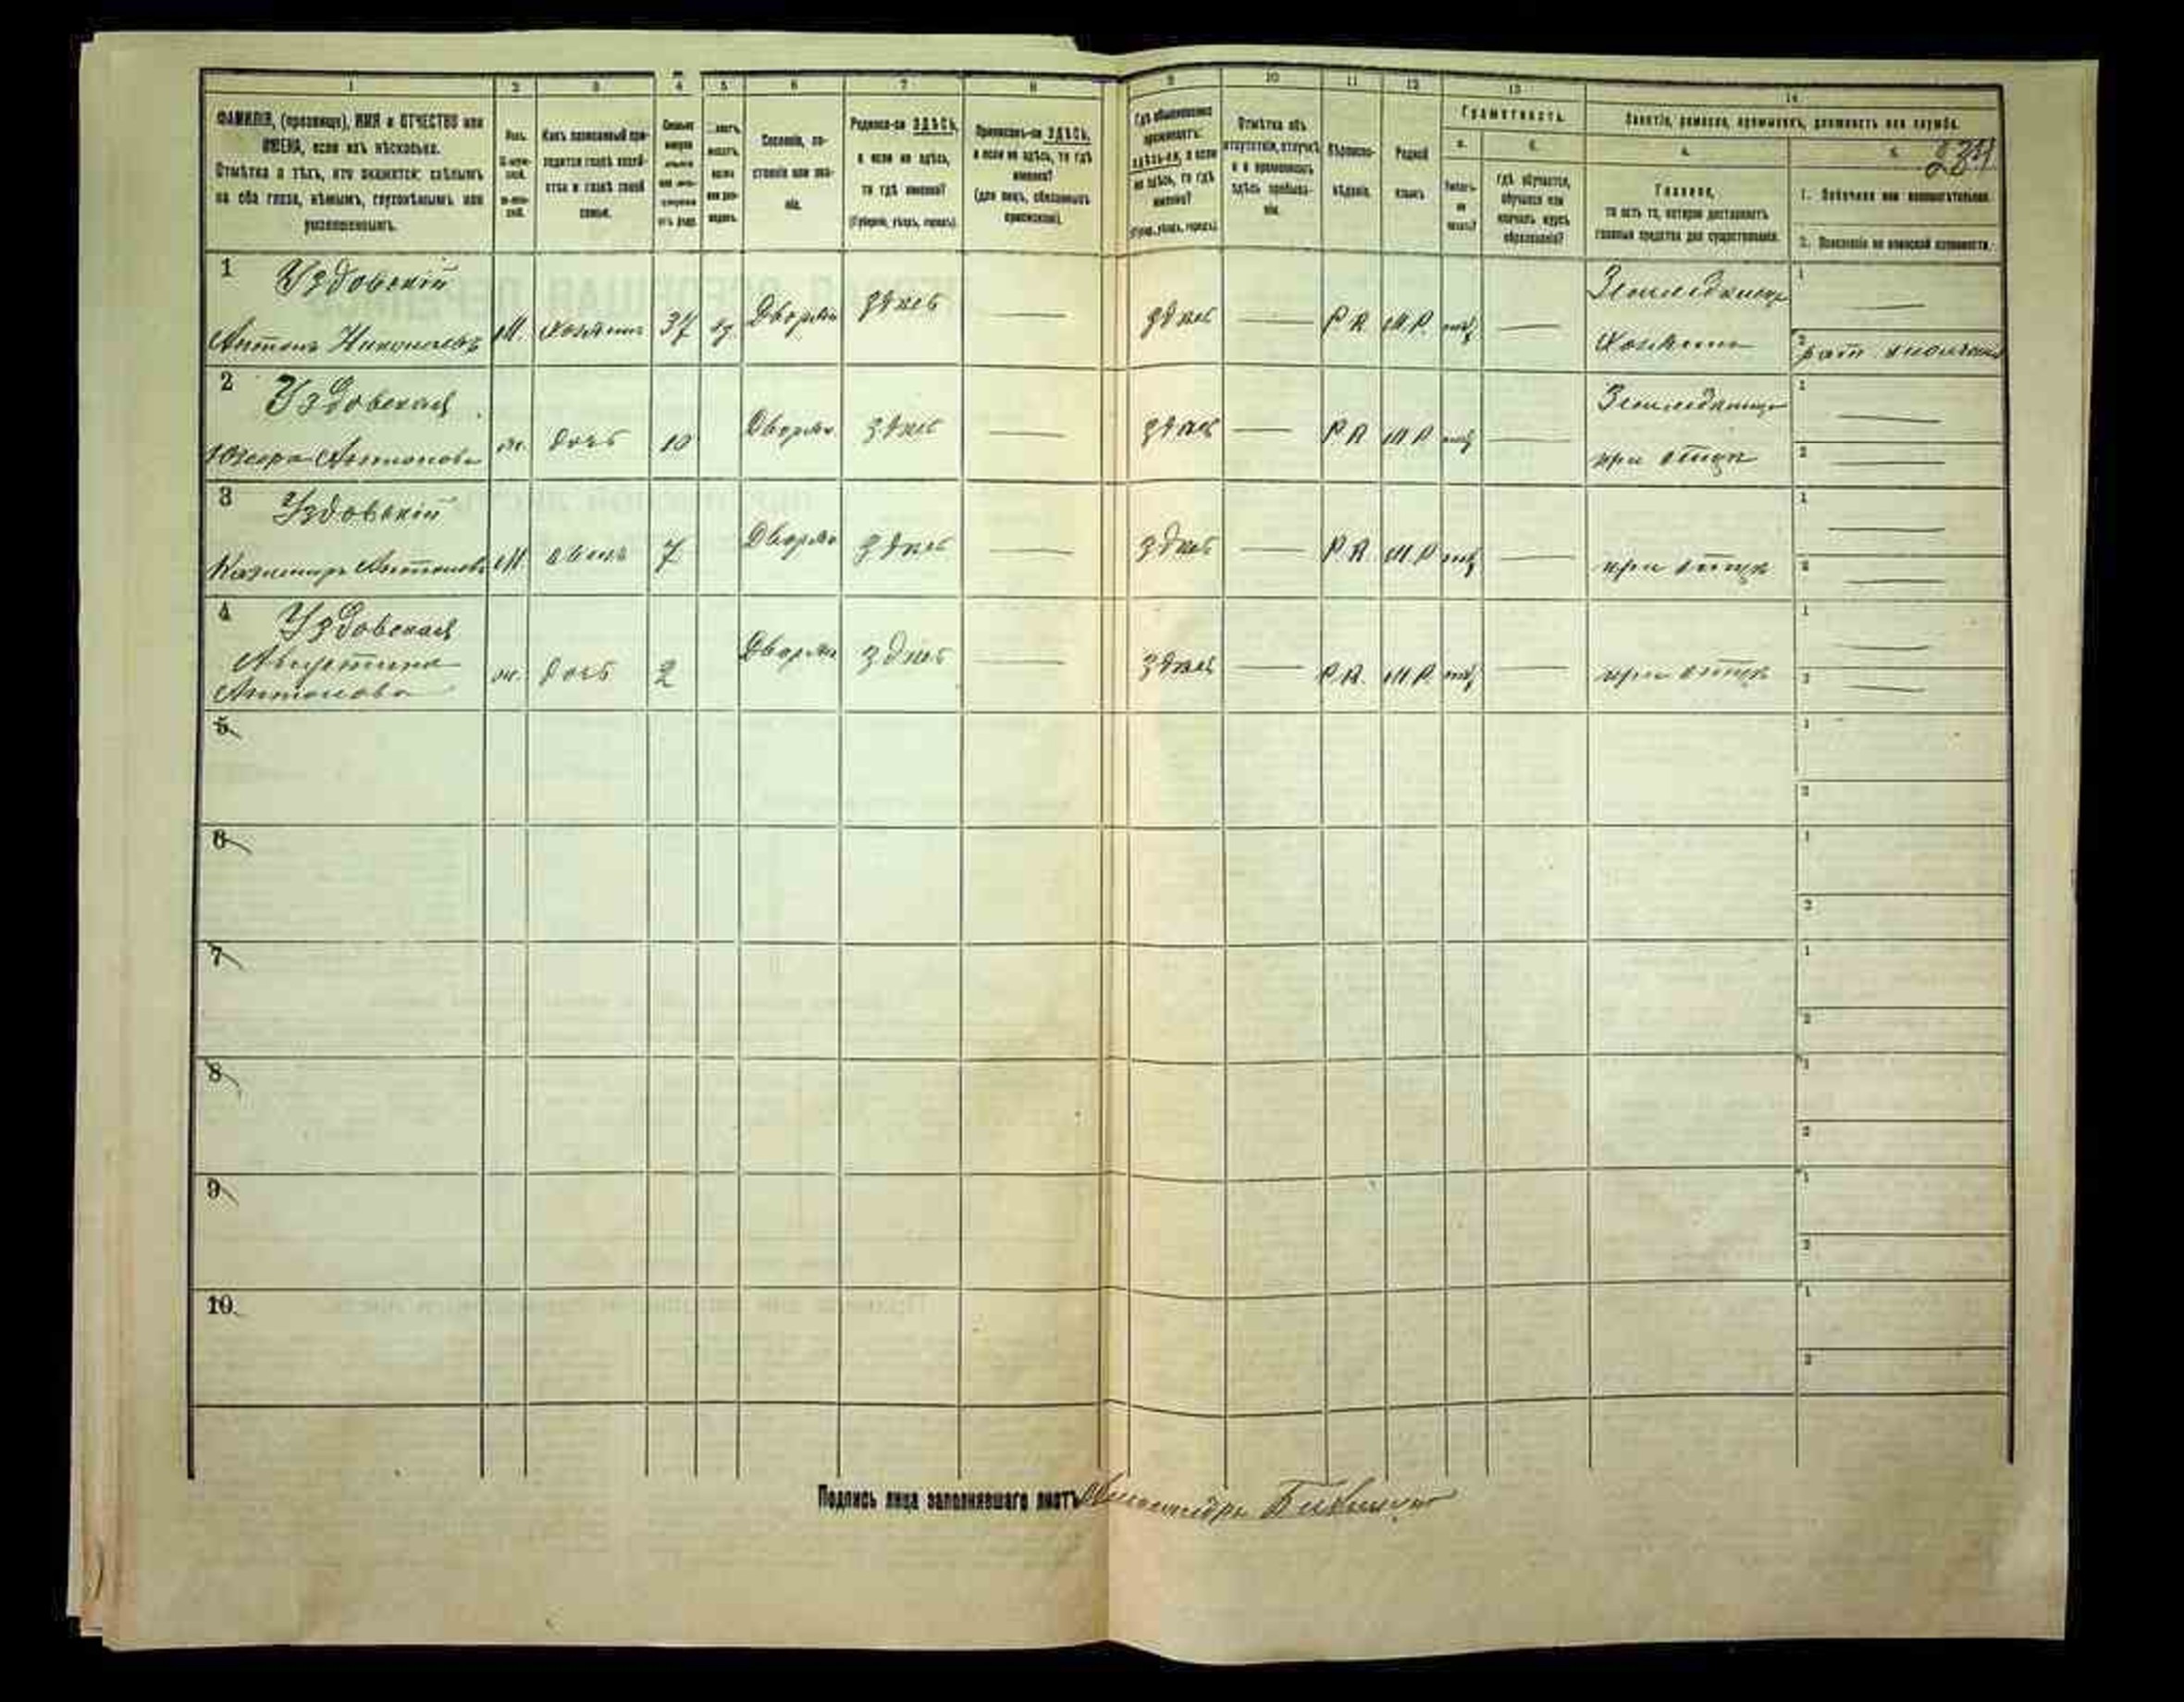 1 2 3 4 5 6 7 8 9 10 11 12 13 14
ФАМИЛІЯ, (прозвище), ИМЯ и ОТЧЕСТВО или
ИМЕНА, если ихъ нѣсколько.
Отмѣтка о тѣхъ, кто окажется: слѣпымъ
на оба глаза, нѣмымъ, глухонѣмымъ или
умалишеннымъ.
Полъ.
Какъ записанный при-
ходится главѣ хозяй-
ства и главѣ своей
семьи.
Сословіе, со-
стояніе или зва-
ніе.
Родился-ли ЗДѢСЬ,
а если не здѣсь,
то гдѣ именно?
(Губернія, уѣздъ, городъ).
Приписанъ-ли ЗДѢСЬ,
а если не здѣсь, то гдѣ
именно?
(для лицъ, обязанныхъ
припискою).
Гдѣ обыкновенно
проживаетъ:
здѣсь-ли, а если
не здѣсь, то гдѣ
именно?
(Губер., уѣздъ, городъ).
Отмѣтка объ
отсутствіи, отлучкѣ
и о временномъ
здѣсь пребыва-
ніи.
Вѣроиспо-
вѣданіе.
Родной
языкъ.
Грамотность.
а. б.
Умѣетъ-
ли
читать?
гдѣ обучается,
обучался или
кончилъ курсъ
образованія?
Занятіе, ремесло, промыселъ, должность или служба.
а. б.
234
Главное,
то есть то, которое доставляетъ
главныя средства для существованія.
1. Побочное или вспомогательное.
2. Положеніе по воинской повинности.
1 Уздовскій
Антонъ Николаевъ М. хозяинъ 37 Дворян здѣсь — здѣсь — Р К М.Р. нѣтъ — Земледѣлецъ
Хозяинъ 1 —
2 рат. ополчения
2 Уздовская
Антонова ж. дочь 10 Дворян. здѣсь — здѣсь — Р К М Р нѣтъ —
при отцѣ 1 —
2 —
3 Уздовскій
Казимиръ Антоновъ М сынъ 7 Дворян здѣсь — здѣсь — Р.К. М.Р нѣтъ — при отцѣ 1 —
2 —
4 Уздовская
Августина
Антонова ж. дочь 2 Дворян здѣсь — здѣсь — Р.К. М.Р. нѣтъ — при отцѣ 1 —
2 —
5 1
2
6 1
2
7 1
2
8 1
2
9 1
2
10. 1
2
Подпись лица заполнявшаго листъ Александръ